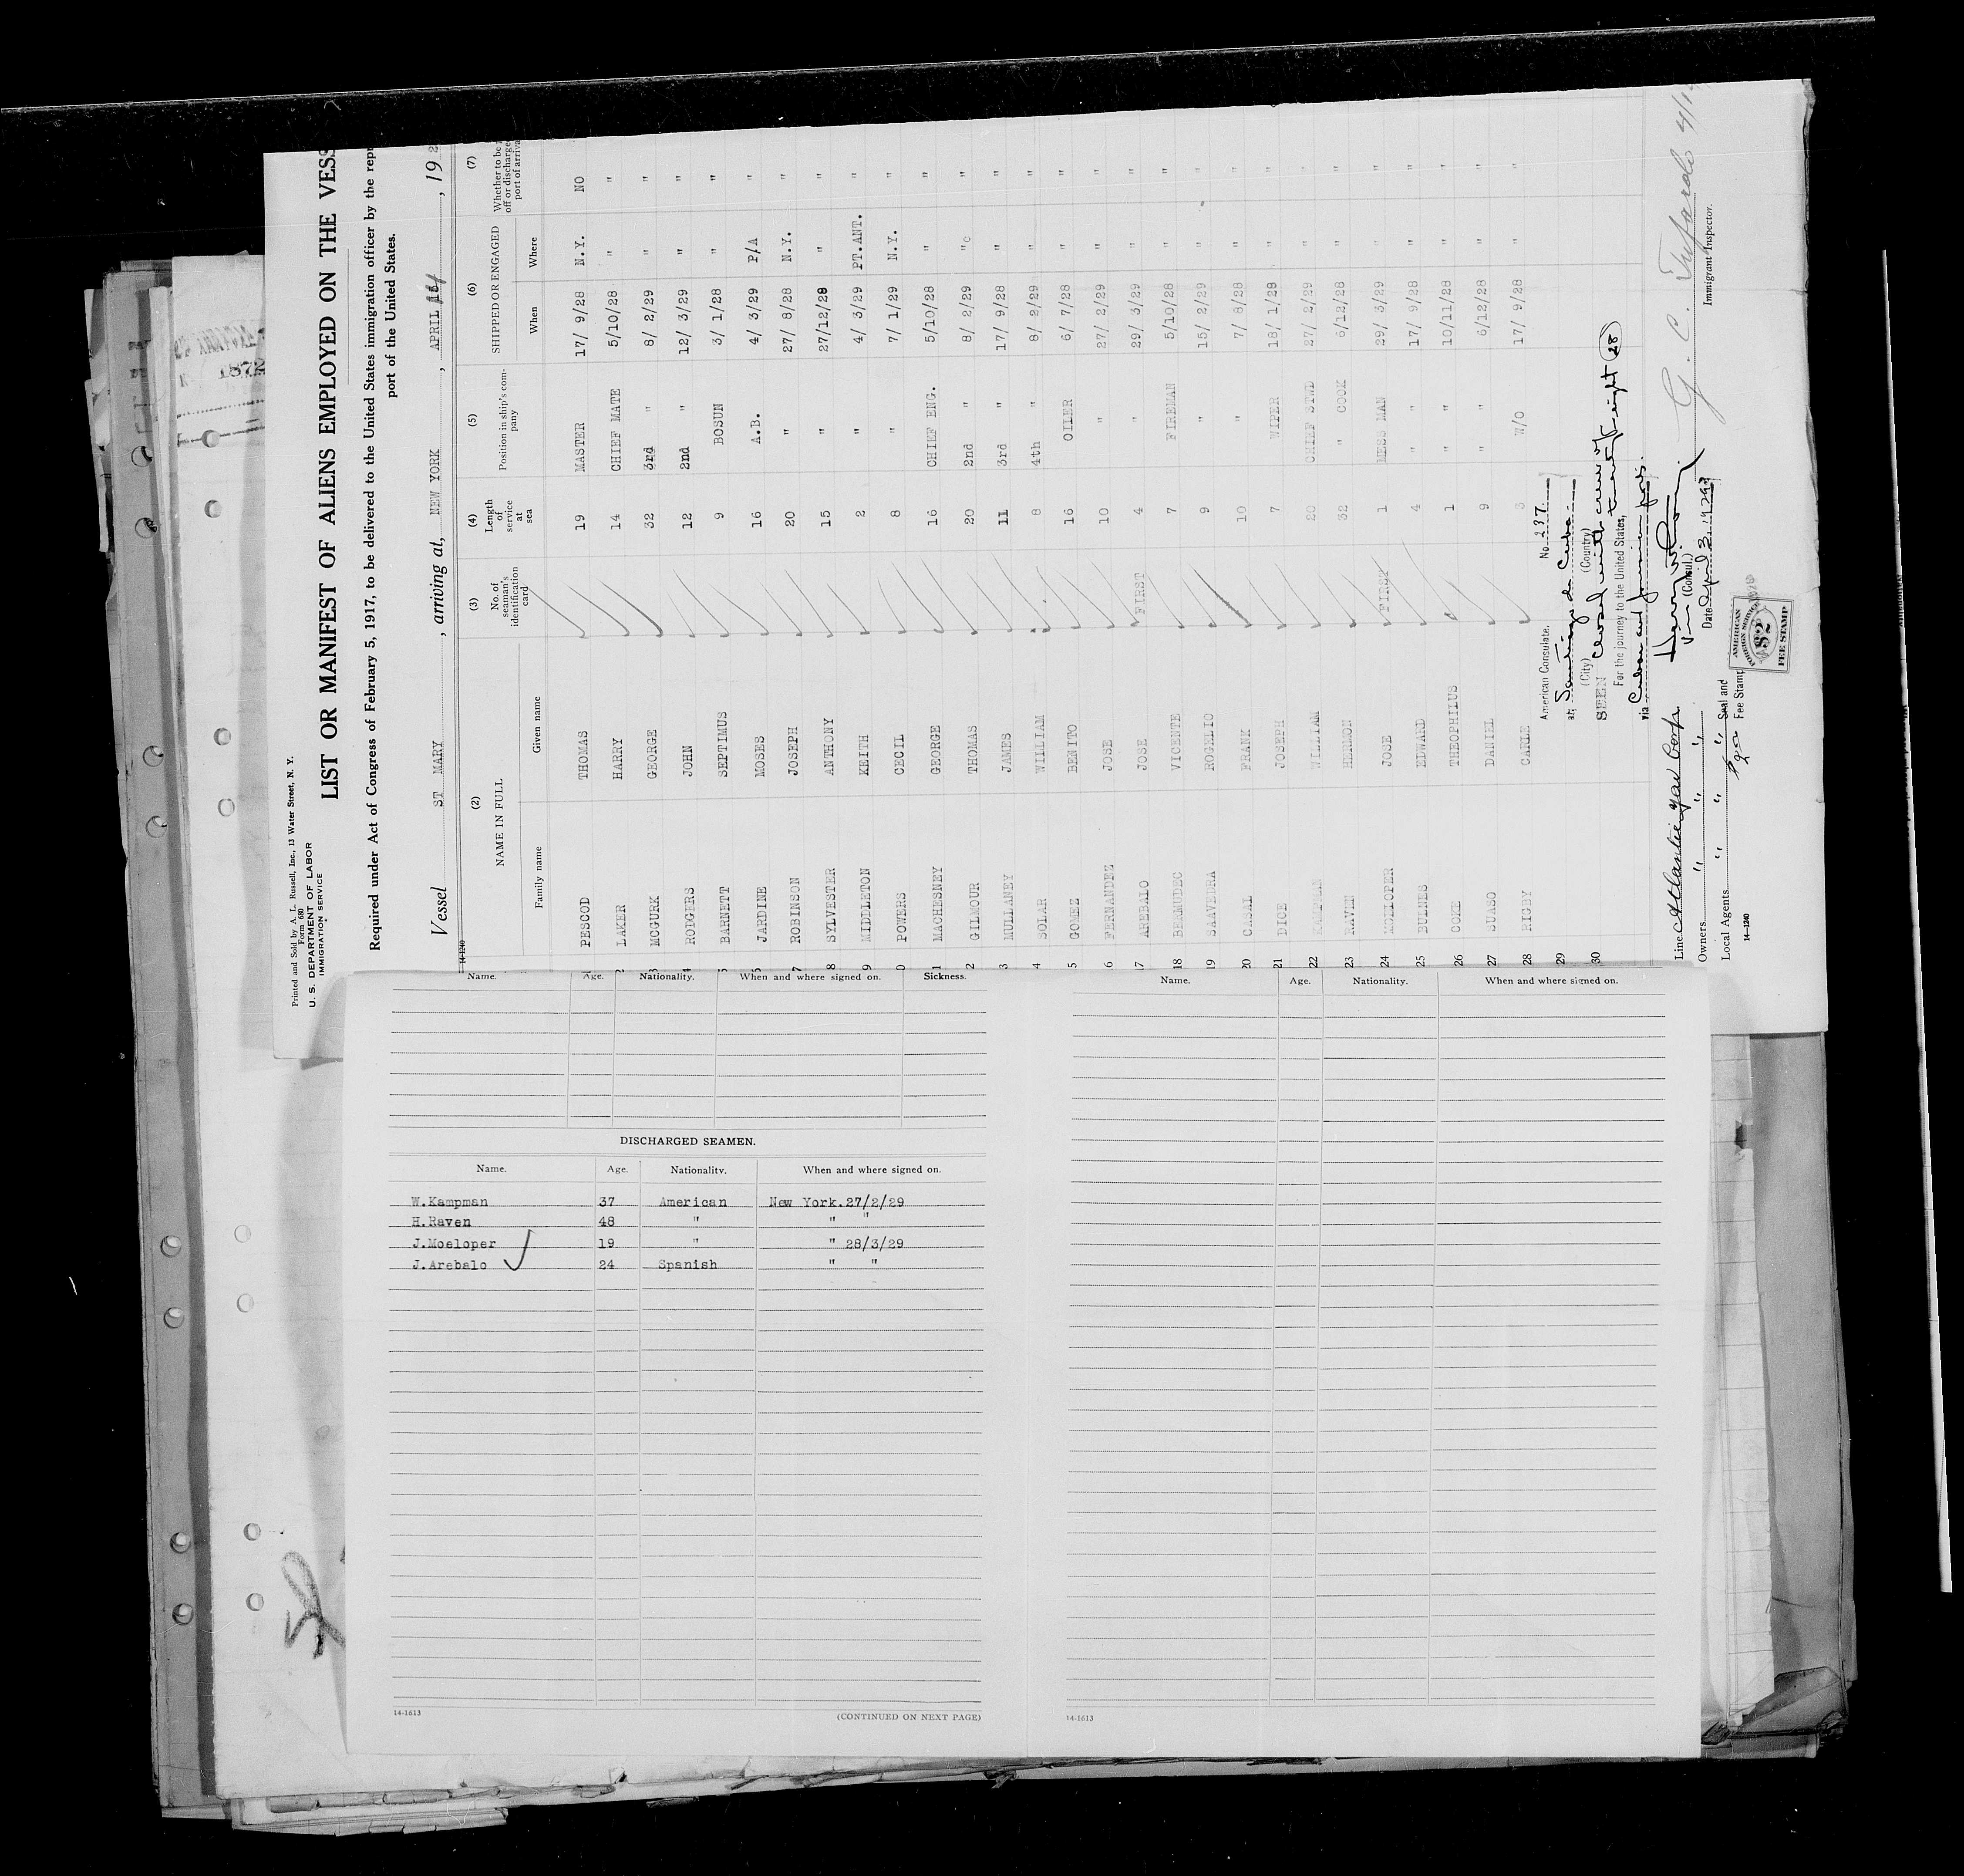 Printed and Sold by A. L. Russell, Inc., 13 Water Street, N. Y.
Form 680
U. S. DEPARTMENT OF LABOR
IMMIGRATION SERVICE
LIST OR MANIFEST OF ALIENS EMPLOYED ON THE VESS
Required under Act of Congress of February 5, 1917, to be delivered to the United States immigration officer by the repr
port of the United States.
Vessel ST MARY , arriving at, NEW YORK , APRIL , 19 2
14-1240
(2) (3) (4) (5) (6) (7)
NAME IN FULL No. of seaman's identification card Length of service at sea Position in ship's company SHIPPED OR ENGAGED Whether to be off or discharged port of arriva
Family name Given name When Where
PESCOD THOMAS 19 MASTER 17/ 9/28 N.Y. NO
2 LAKER HARRY 14 CHIEF MATE 5/10/28 " "
3 MCGURK GEORGE 32 3rd " 8/ 2/29 " "
4 RODGERS JOHN 12 2nd " 12/ 3/29 " "
5 BARNETT SEPTIMUS 9 BOSUN 3/ 1/28 " "
6 JARDINE MOSES 16 A.B. 4/ 3/29 P/A "
7 ROBINSON JOSEPH 20 " 27/ 8/28 N.Y. "
8 SYLVESTER ANTHONY 15 " 27/12/28 " "
9 MIDDLETON KEITH 2 " 4/ 3/29 PT.ANT. "
0 POWERS CECIL 8 " 7/ 1/29 N.Y. "
1 MACHESNEY GEORGE 16 CHIEF ENG. 5/10/28 " "
2 GILMOUR THOMAS 20 2nd " 8/ 2/29 "c "
3 MULLANEY JAMES 11 3rd " 17/ 9/28 " "
4 SOLAR WILLIAM 8 4th " 8/ 2/29 " "
5 GOMEZ BENITO 16 OILER 6/ 7/28 " "
6 FERNANDEZ JOSE 10 " 27/ 2/29 " "
17 AREBALO JOSE FIRST 4 " 29/ 3/29 " "
18 BERMUDEC VICENTE 7 FIREMAN 5/10/28 " "
19 SAAVEDRA ROGELIO 9 " 15/ 2/29 " "
20 CASAL FRANK 10 " 7/ 8/28 " "
21 DICE JOSEPH 7 WIPER 18/ 1/28 " "
22 KAMPMAN WILLIAM 20 CHIEF STWD 27/ 2/29 " "
23 RAVEN HERMON 32 " COOK 6/12/28 " "
24 MOELOPER JOSE FIRST 1 MESS MAN 29/ 3/29 " "
25 BULNES EDWARD 4 " 17/ 9/28 " "
26 COKE THEOPHILUS 1 " 10/11/28 " "
27 SUASO DANIEL 9 " 6/12/28 " "
28 RIGBY CARLE 3 W/O 17/ 9/28 " "
29
30
American Consulate. No. 237
at Santiago de Cuba
(City) (Country)
SEEN closed with crew of
For the journey to the United States, twenty eight 28
via Cuban and Jamaican ports.
(Consul.)
Date April 3, 1929
Line Atlantic
Owners " " "
Local Agents " " "
Seal and
Fee Stamp
AMERICAN
FOREIGN SERVICE
$2
FEE STAMP
Immigrant Inspector.
14-1240
Name. Age. Nationality. When and where signed on. Sickness.
DISCHARGED SEAMEN.
Name. Age. Nationality. When and where signed on.
W.Kampman 37 American New York.27/2/29
H.Raven 48 " " "
J.Moeloper 19 " " 28/3/29
J.Arebalo 24 Spanish " "
14-1613
(CONTINUED ON NEXT PAGE)
Name. Age. Nationality. When and where signed on.
14-1613